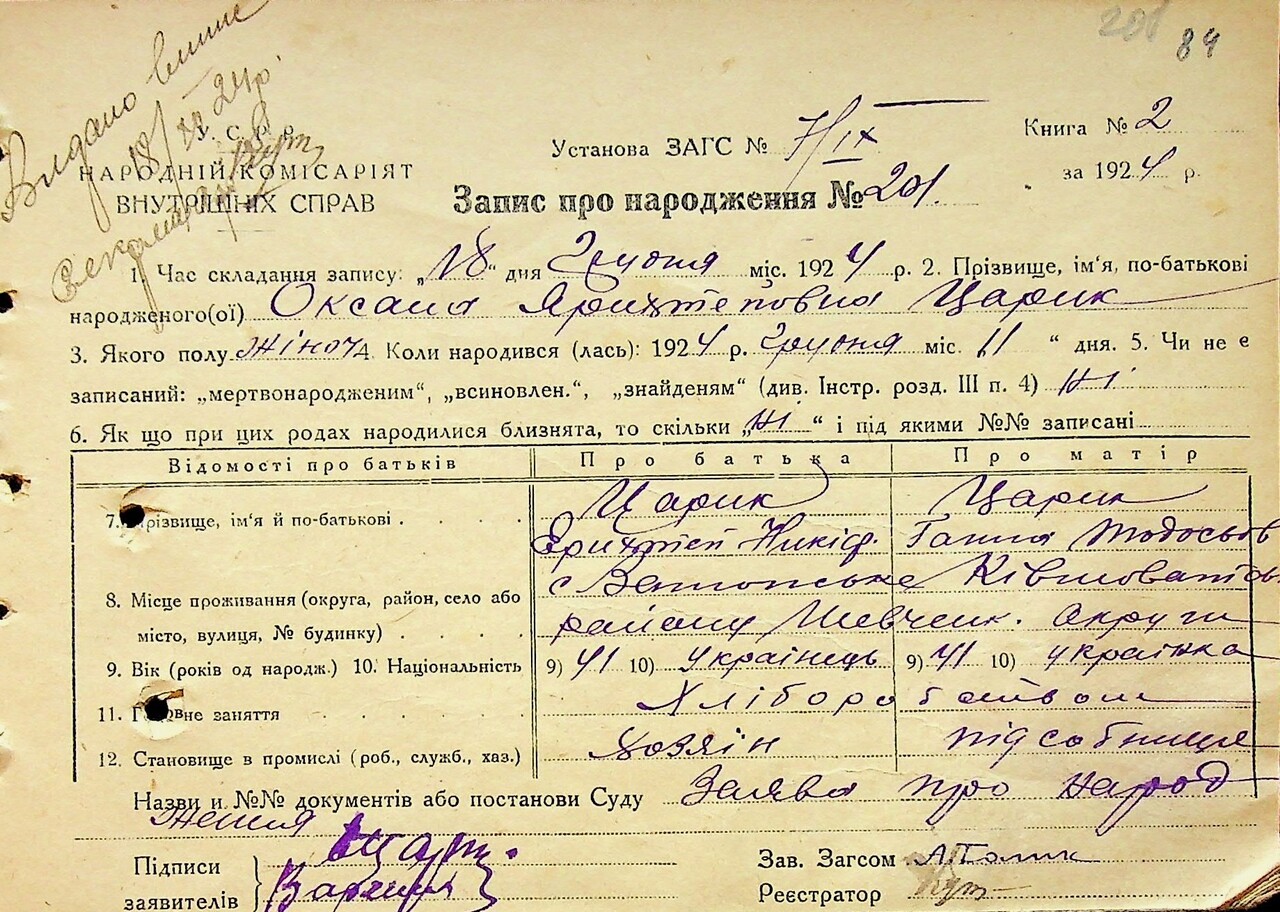 201 84
Видано виписку
18/XII 24 р.
У. С. Р. Р.
НАРОДНІЙ КОМІСАРІЯТ
ВНУТРІШНІХ СПРАВ
Установа ЗАГС № 7/IX
Книга № 2
за 1924 р.
Запис про народження № 201.
1. Час складання запису: „18“ дня Грудня міс. 1924 р. 2. Прізвище, ім'я, по-батькові
народженого(ої) Оксана Ярихтеповна Царик
3. Якого полу жіноч 4. Коли народився (лась): 1924 р. Грудня міс. 11 “ дня. 5. Чи не є
записаний: „мертвонародженим“, „всиновлен.“, „знайденям“ (див. Інстр. розд. III п. 4) Ні
6. Як що при цих родах народилися близнята, то скільки „Ні“ і під якими №№ записані
Відомості про батьків Про батька Про матір
7. Прізвище, ім'я й по-батькові Царик Царик
Ярихтеп Никіф. Ганна Тодосьов
8. Місце проживання (округа, район, село або
місто, вулиця, № будинку)
с Ківшоватсь
району Шевченк. Округи
9. Вік (років од народж.) 10. Національність 9) 41 10) Українець 9) 41 10) українка
11. Головне заняття Хліборобством
12. Становище в промислі (роб., служб., хаз.) Хозяін підсобниця
Назви и №№ документів або постанови Суду Заява про народ
ження
Підписи
заявителів
Зав. Загсом
Реєстратор